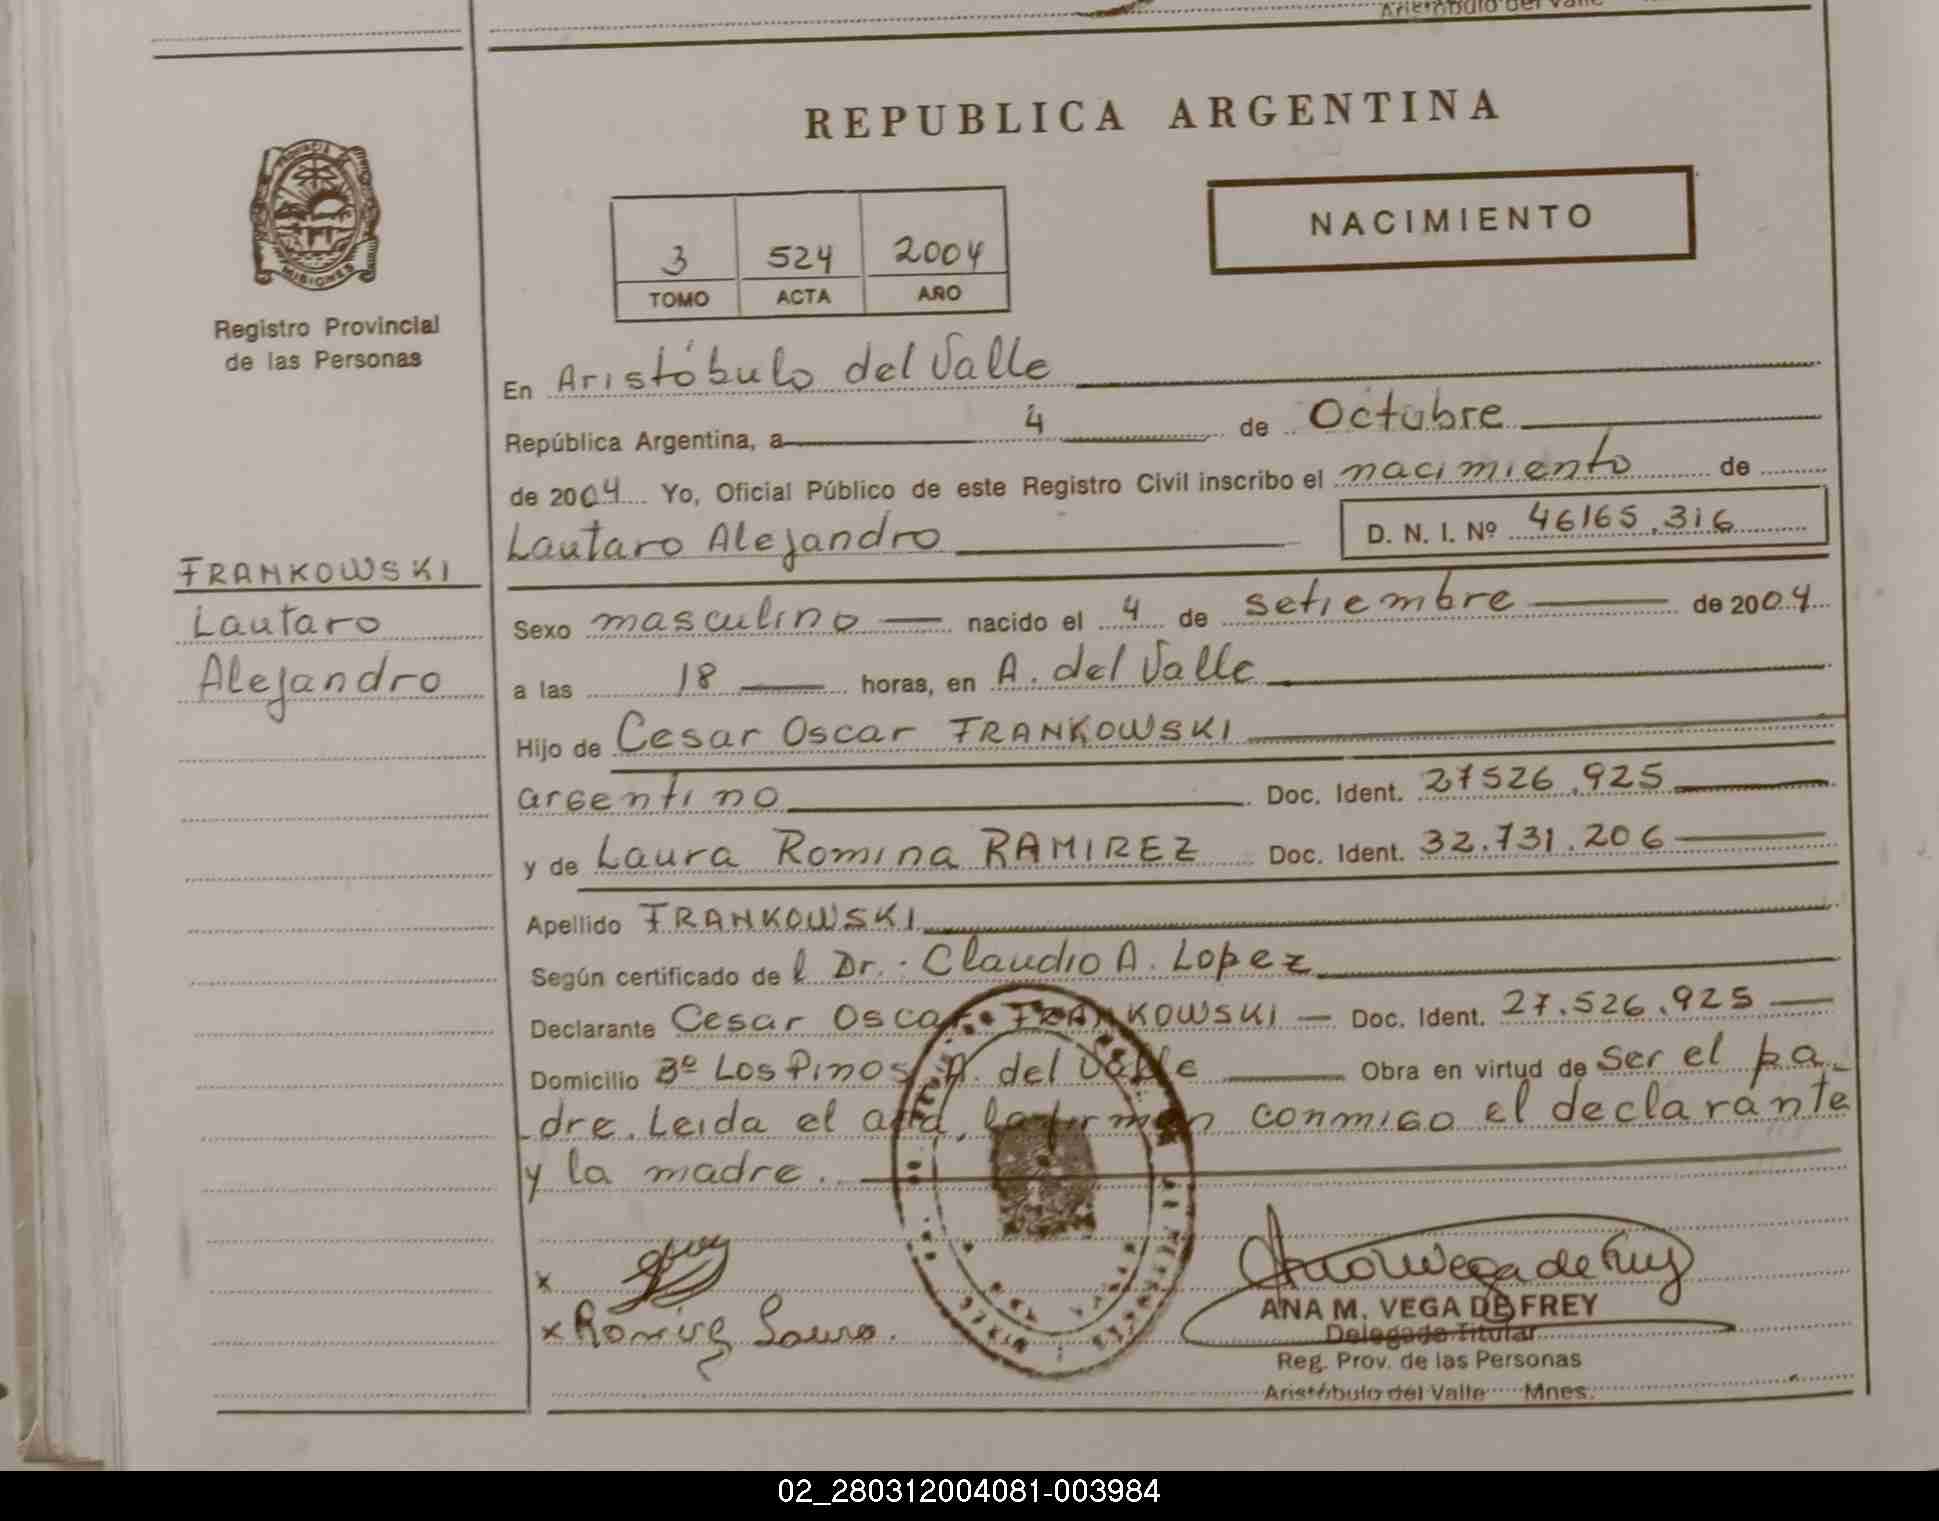 Aristóbulo del Valle
REPUBLICA ARGENTINA
PROVINCIA DE
MISIONES
Registro Provincial
de las Personas
NACIMIENTO
3 524 2004
TOMO ACTA AÑO
En Aristóbulo del Valle
República Argentina, a 4 de Octubre
de 2004 Yo, Oficial Público de este Registro Civil inscribo el nacimiento de
Lautaro Alejandro D. N. I. Nº 46165.316
FRANKOWSKI
Lautaro
Alejandro
Sexo masculino nacido el 4 de setiembre de 2004
a las 18 horas, en A. del Valle
Hijo de Cesar Oscar FRANKOWSKI
argentino Doc. Ident. 27526.925
y de Laura Romina RAMIREZ Doc. Ident. 32.731.206
Apellido FRANKOWSKI
Según certificado de l Dr. Claudio A. Lopez
Declarante Cesar Oscar FRANKOWSKI Doc. Ident. 27.526.925
Domicilio Bº Los Pinos, A. del Valle Obra en virtud de ser el pa-
dre. Leida el acta, la firman conmigo el declarante
y la madre.
x
x Ramirez Laura.
Ana M Vega de Frey
ANA M. VEGA DE FREY
Delegada Titular
Reg. Prov. de las Personas
Aristóbulo del Valle Mnes.
02_280312004081-003984